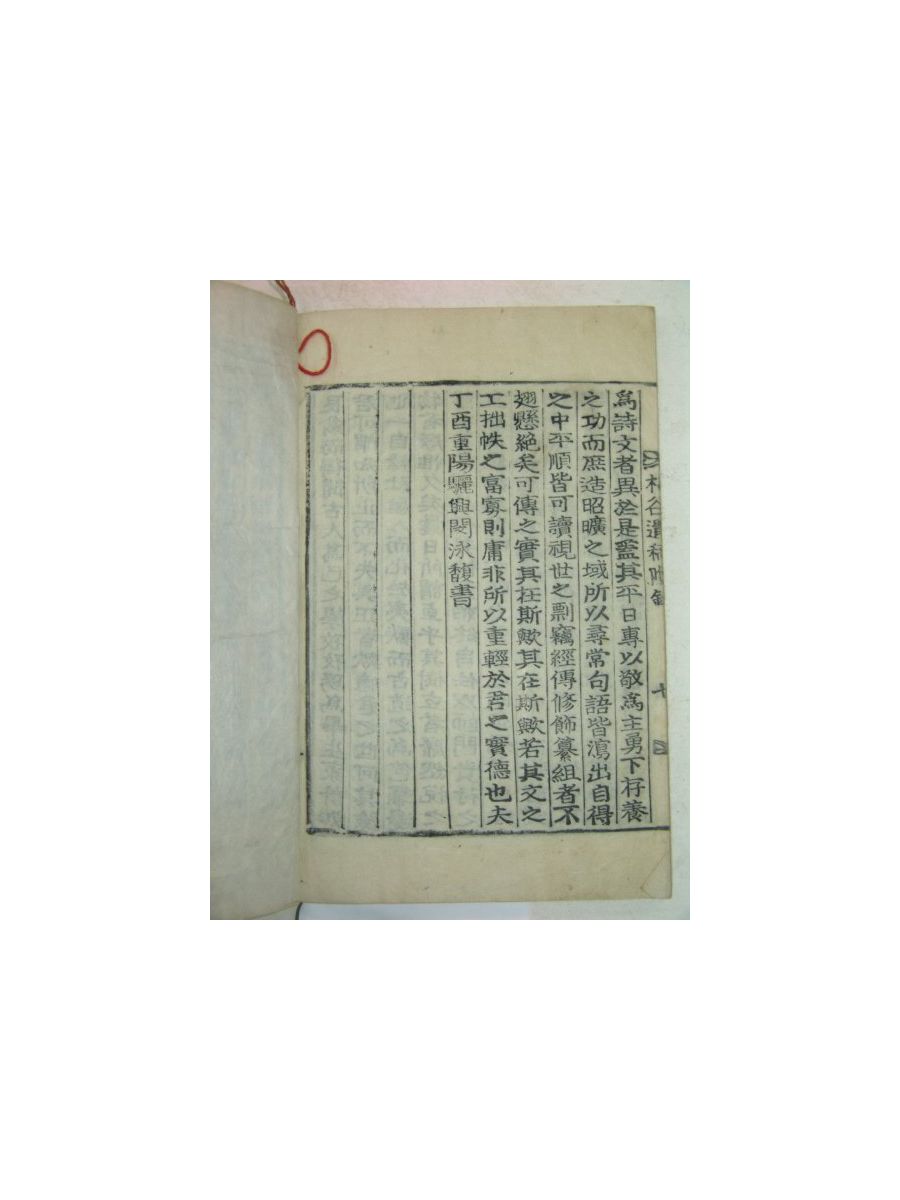 谷遺稿附錄
爲詩文者異於是蓋其平日專以敬爲主勇下存養
之功而庶造昭曠之域所以尋常句語皆瀉出自得
之中平順皆可讀視世之剽竊經傳修飾纂組者不
翅懸絶矣可傳之實其在斯歟其在斯歟若其文之
工拙帙之富寡則庸非所以重輕於君之實德也夫
丁酉重陽驪興閔泳馥書